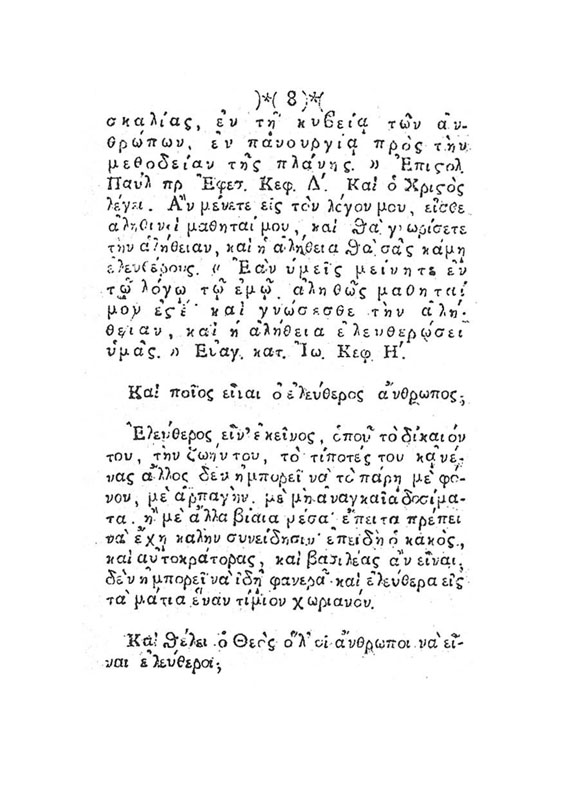 )*( 8 )*(
σκαλίας, ἐν τῇ κυβείᾳ τῶν ἀν-
θρώπων, ἐν πανουργίᾳ πρὸς τὴν
μεθοδείαν τῆς πλάνης. » Ἐπιςολ
Παυλ πρ Ἐφεσ. Κεφ. Δ΄. Καὶ ὁ Χριςὸς
λέγει. Ἂν μένετε εἰς τὸν λόγον μου, εἶσθε
ἀληθινοὶ μαθηταί μου, καὶ θὰ γνωρίσετε
τὴν ἀλήθειαν, καὶ ἡ ἀλήθεια θὰ σᾶς κάμῃ
ἐλευθέρους. « Ἐὰν ὑμεῖς μείνητε ἐν
τῷ λόγῳ τῷ ἐμῷ, ἀληθῶς μαθηταί
μου ἐςέ· καὶ γνώσεσθε τὴν ἀλή-
θειαν, καὶ ἡ ἀλήθεια ἐλευθερώσει
ὑμᾶς. » Εὐαγ. κατ. Ἰω. Κεφ. Η΄.
Καὶ ποῖος εἶναι ὁ ἐλεύθερος ἄνθρωπος;
Ἐλεύθερος εἶν' ἐκεῖνος, ὁποῦ τὸ δίκαιόν
του, τὴν ζωήν του, τὸ τίποτές του κανέ-
νας ἄλλος δὲν ἠμπορεῖ νὰ τὸ πάρῃ μὲ φό-
νον, μὲ ἁρπαγὴν, μὲ μὴ ἀναγκαῖα δοσίμα-
τα, ἢ μὲ ἄλλα βίαια μέσα· ἔπειτα πρέπει
νὰ ἔχῃ καλὴν συνείδησιν· ἐπειδὴ ὁ κακὸς,
καὶ αὐτοκράτορας, καὶ βασιλέας ἂν εἶναι,
δὲν ἠμπορεῖ νὰ ἰδῇ φανερὰ καὶ ἐλεύθερα εἰς
τὰ μάτια ἕναν τίμιον χωριανόν.
Καὶ θέλει ὁ Θεὸς ὅλ' οἱ ἄνθρωποι νὰ εἶ-
ναι ἐλεύθεροι;